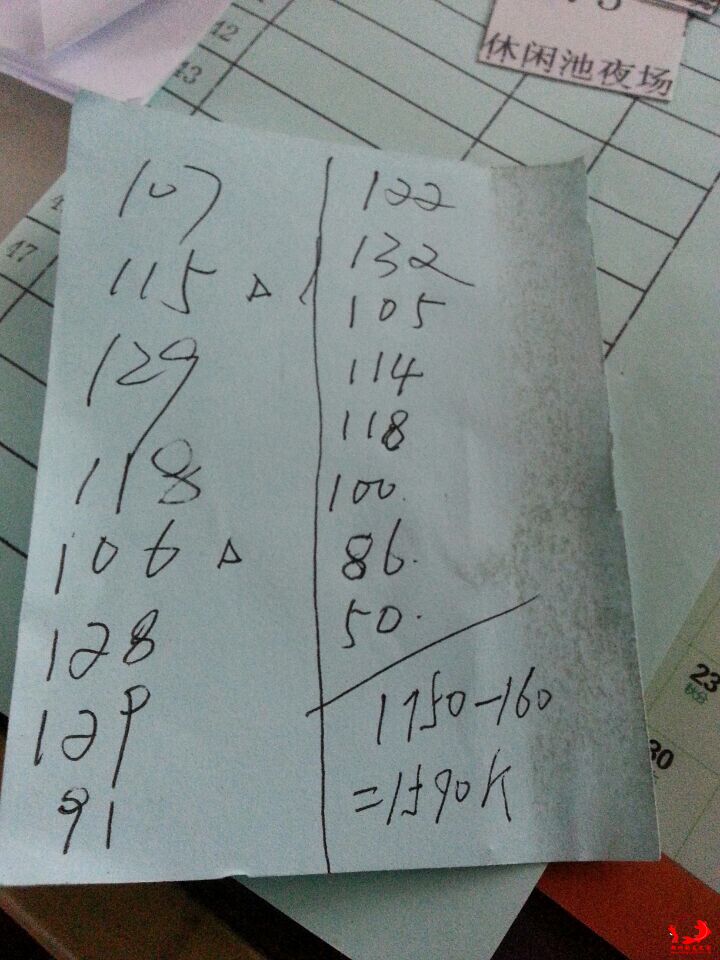 42
43
休闲池夜场
47
107
115 △
129
118
106 △
128
129
91
122
132
105
114
118
100.
86.
50.
1750-160
=1590K
23
30